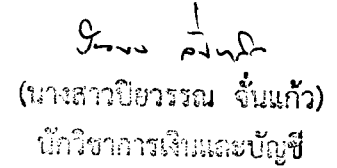 (นางสาวปิยวรรณ จั่นแก้ว)
นักวิชาการเงินและบัญชี